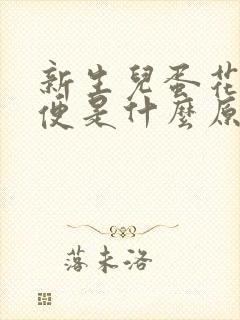 新生兒蛋花
便是什麼原
落未洛